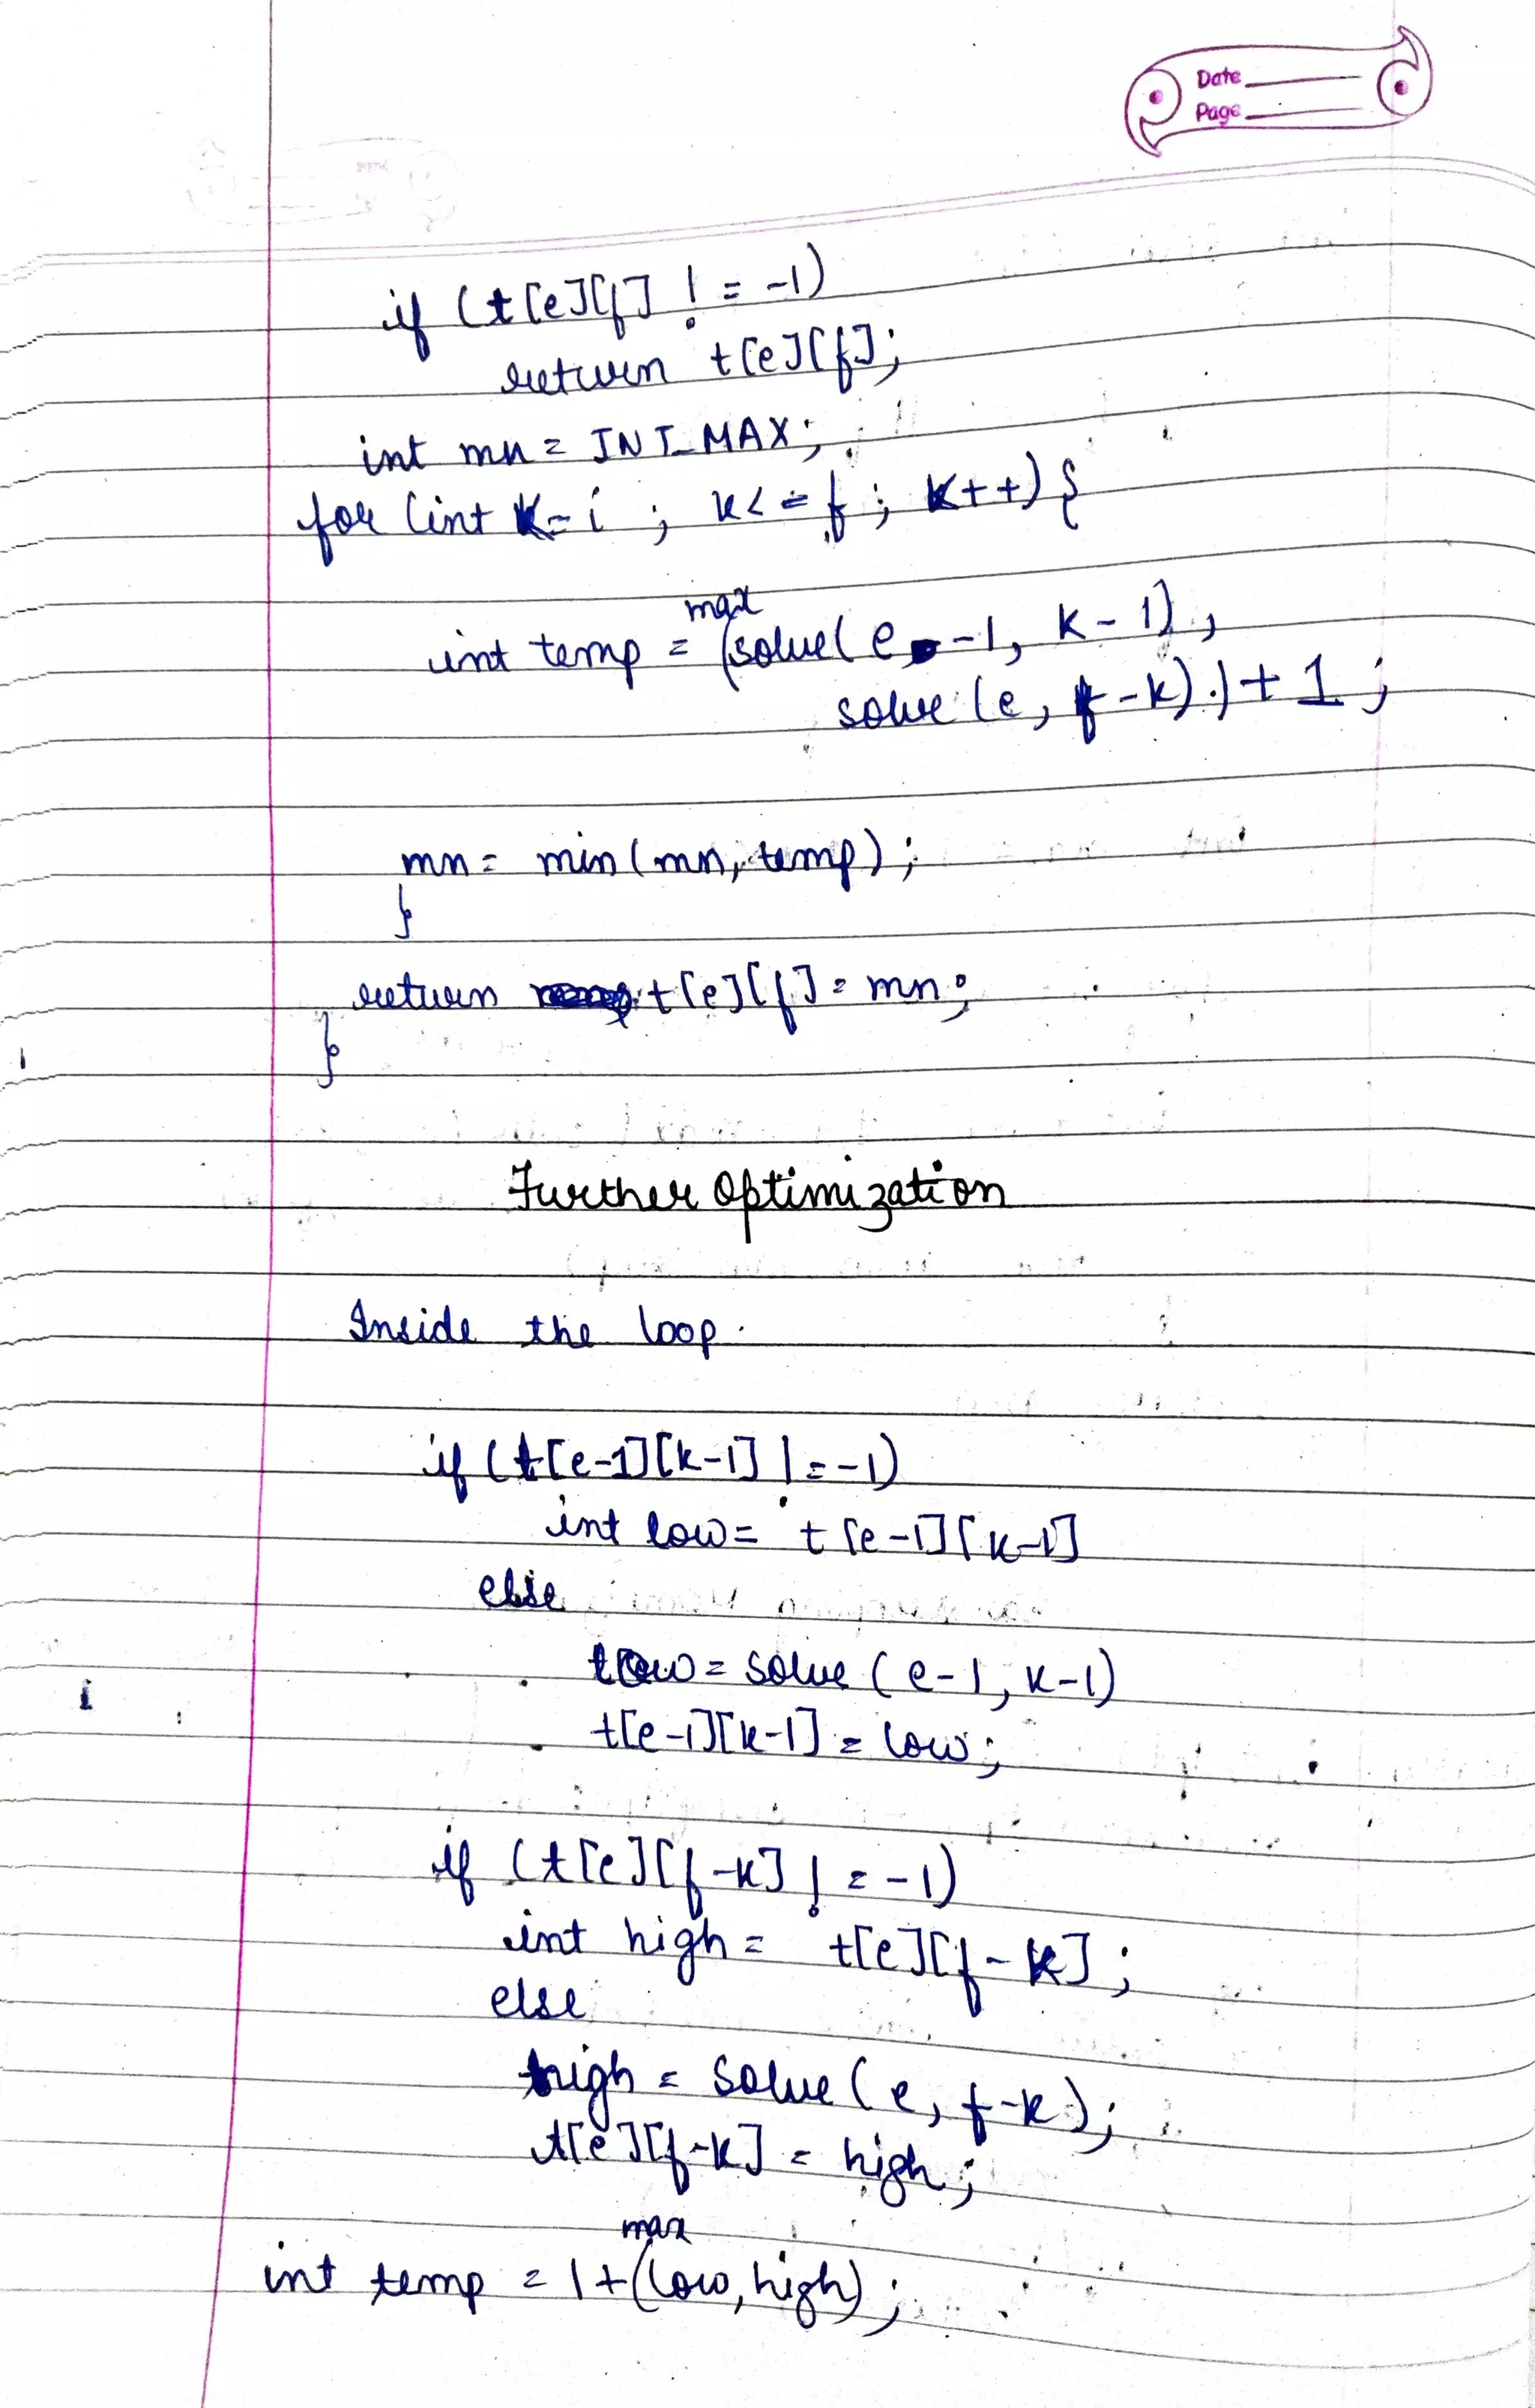 Date
Page
if (t[e][f] != -1)
return t[e][f];
int mn = INT_MAX;
for (int k=i ; k<=f ; k++) {
max
int temp = (solve( e -1, k-1),
solve (e, f-k).)+1;
mn = min (mn, temp);
}
return t[e][f] = mn;
}
Further Optimization
Inside the loop.
if (t[e-1][k-1] != -1)
int low = t[e-1][k-1]
else
low = solve (e-1, k-1)
t[e-1][k-1] = low;
if (t[e][f-k] != -1)
int high = t[e][f-k];
else
high = solve (e, f-k);
t[e][f-k] = high;
max
int temp = 1+(low, high);